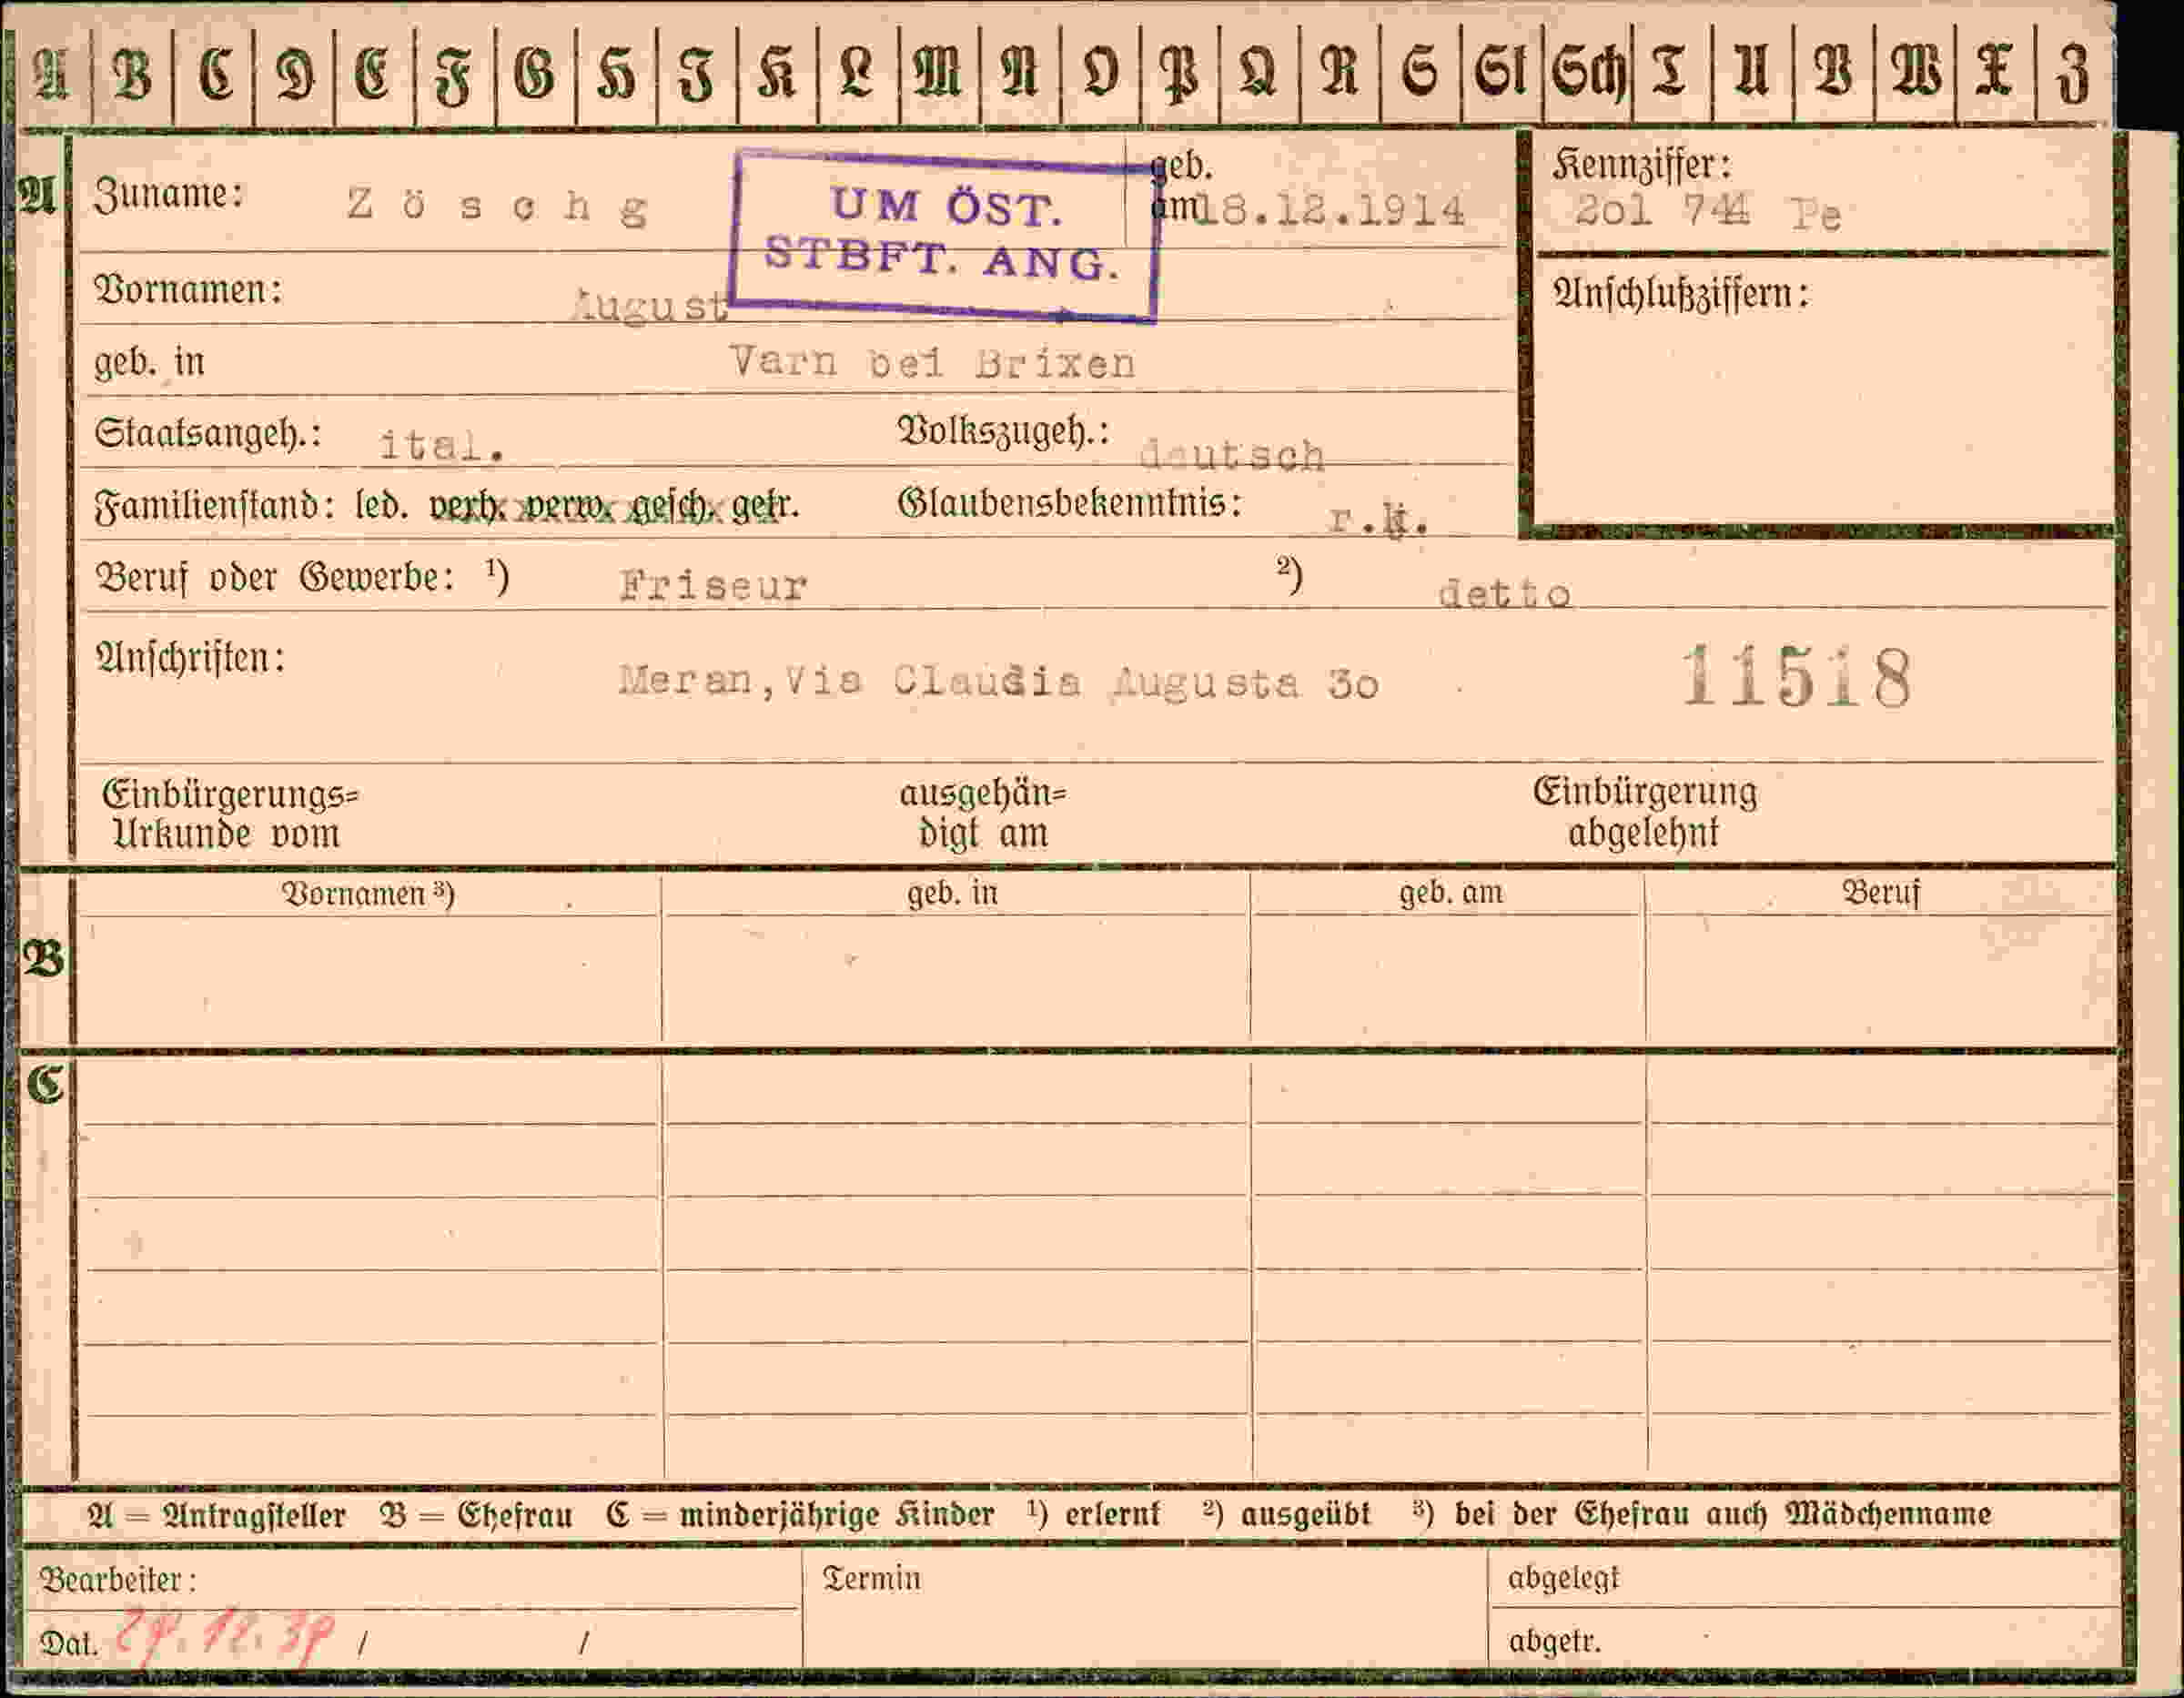 A B C D E F G H I K L M N O P Q R S St Sch T U V W X Z
A Zuname: Zöschg geb. am 18.12.1914 Kennziffer: 2o1 744 Pe
UM ÖST.
STBFT. ANG.
Vornamen: August Anschlußziffern:
geb. in Varn bei Brixen
Staatsangeh.: ital. Volkszugeh.: deutsch
Familienstand: led. verh. verw. gesch. getr. Glaubensbekenntnis: r.k.
Beruf oder Gewerbe: ¹) Friseur ²) detto
Anschriften: Meran, Via Claudia Augusta 3o 11518
Einbürgerungs= ausgehän= Einbürgerung
Urkunde vom digt am abgelehnt
Vornamen ³) geb. in geb. am Beruf
B
C
A = Antragsteller B = Ehefrau C = minderjährige Kinder ¹) erlernt ²) ausgeübt ³) bei der Ehefrau auch Mädchenname
Bearbeiter: Termin abgelegt
Dat. / / abgetr.